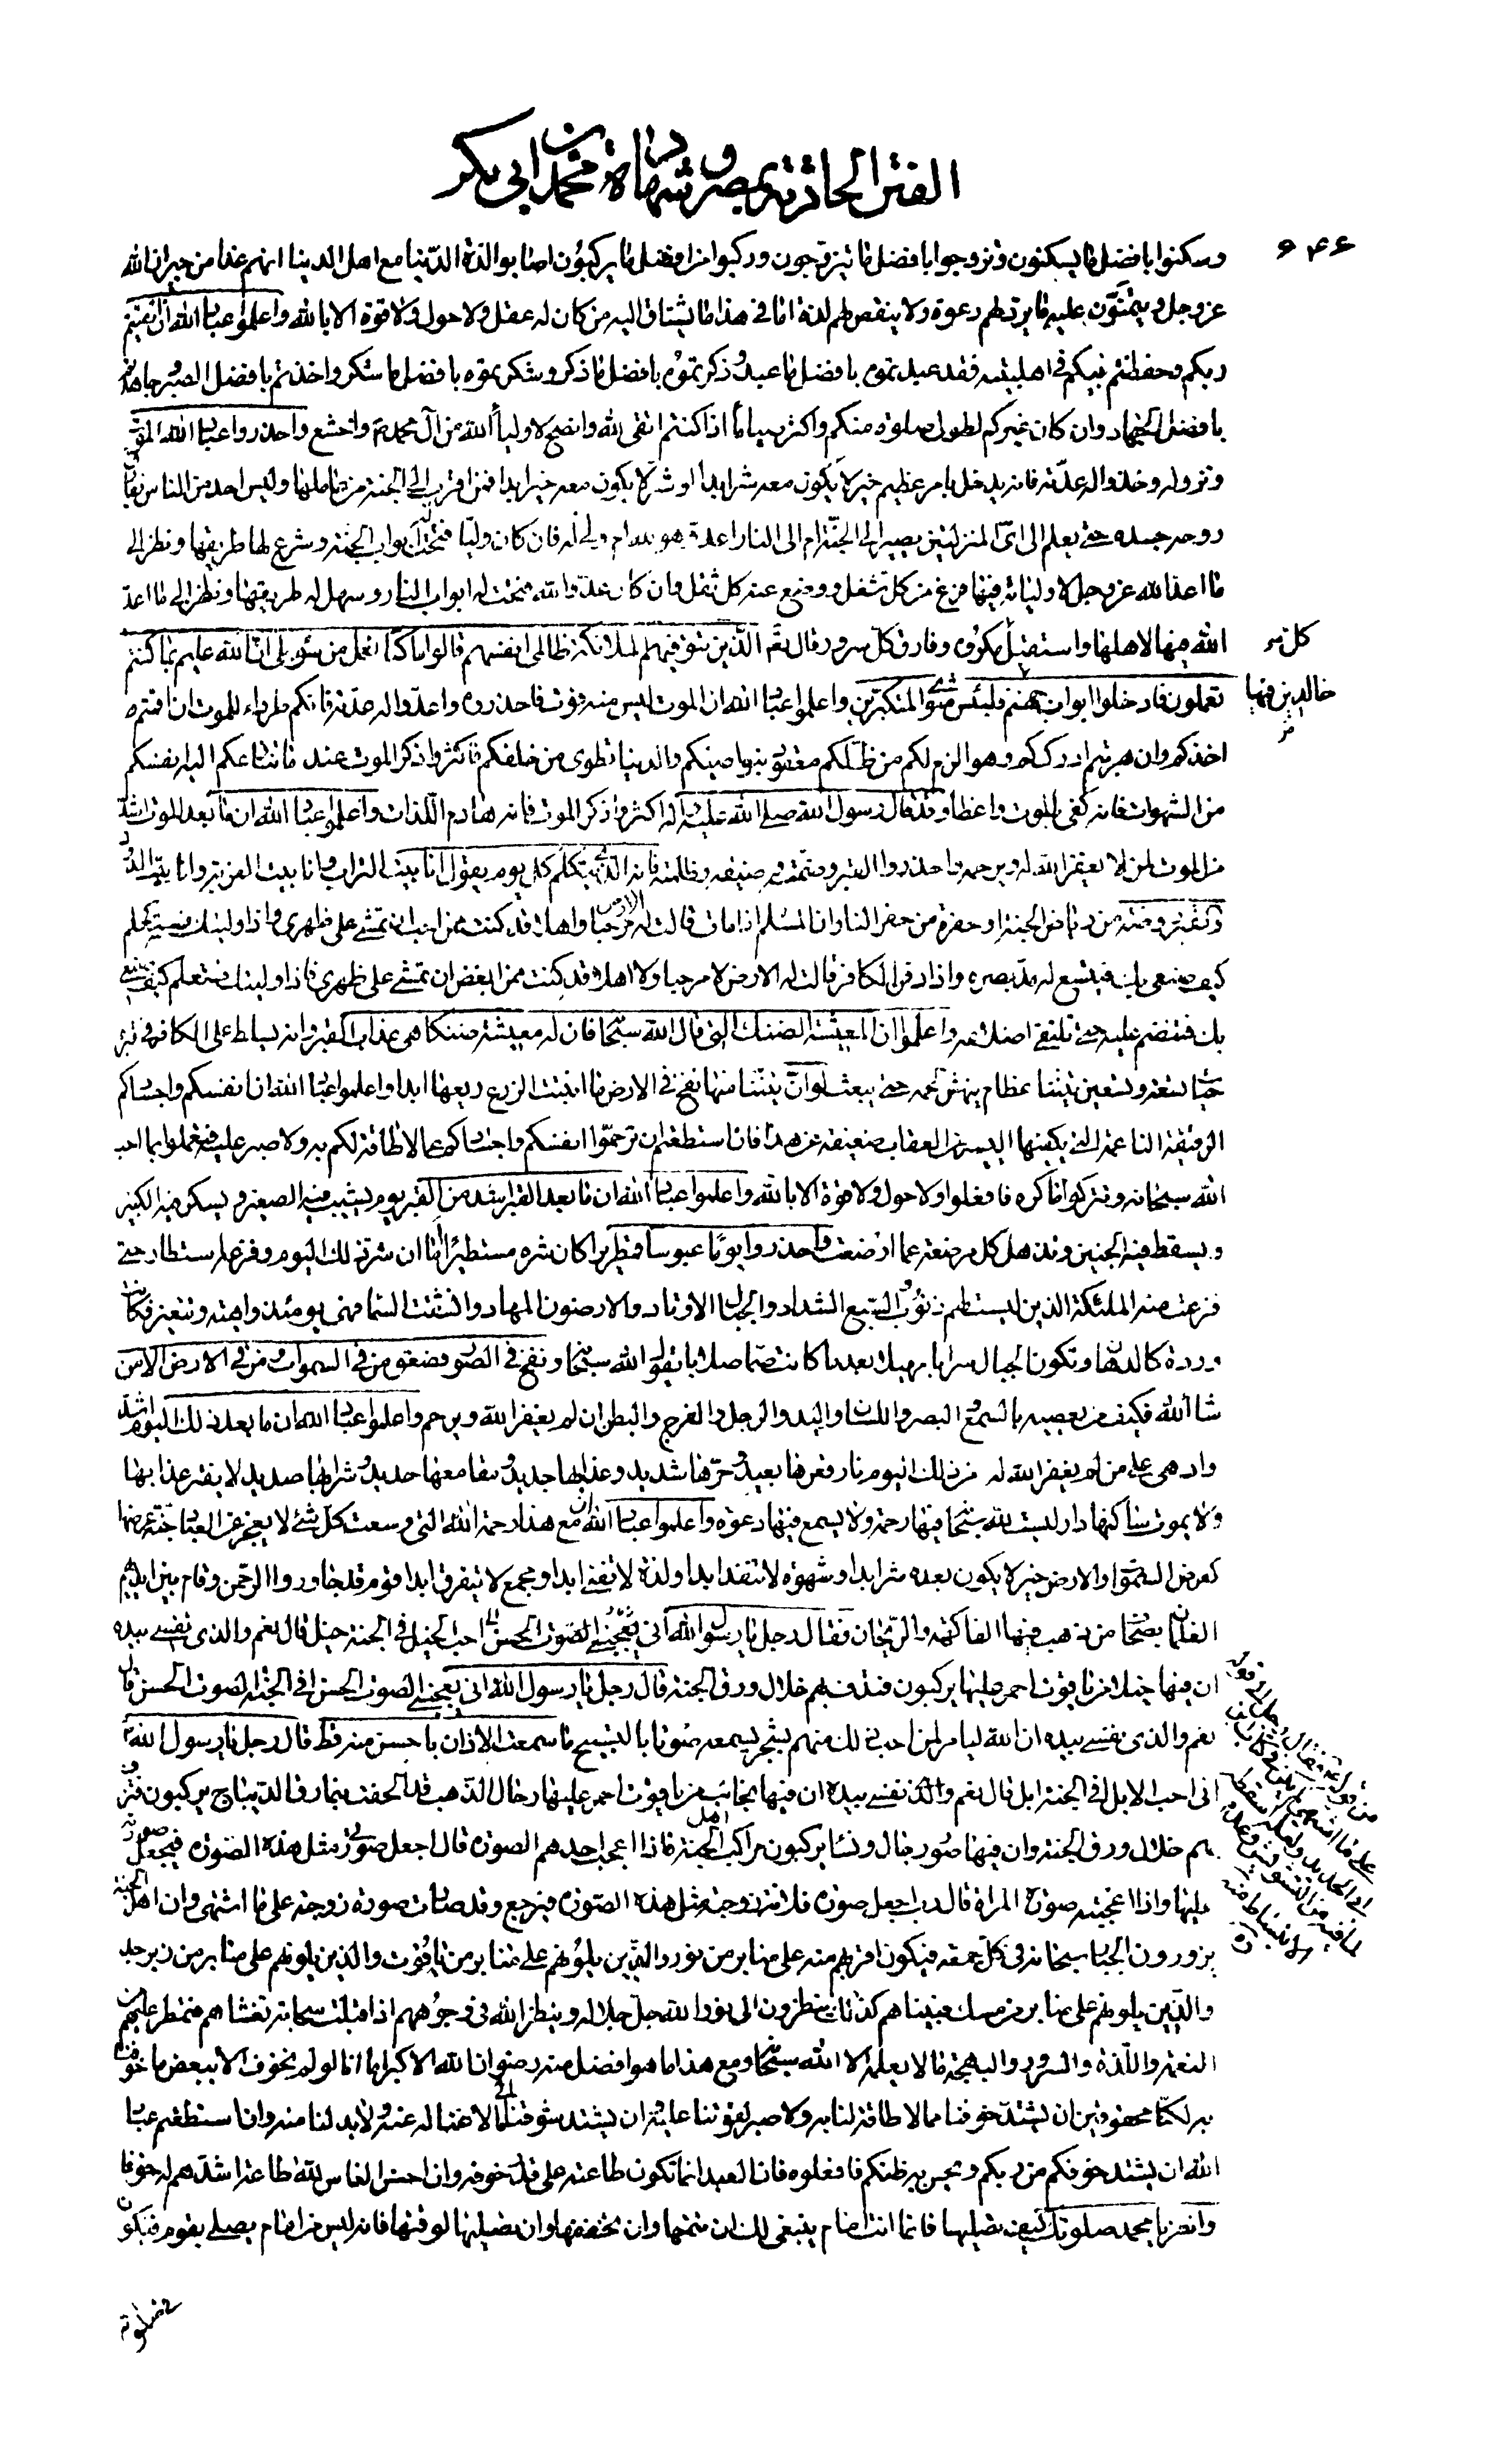 الفتن الحادثة بمصر و شهادة محمد بن ابي بكر
۶۴۶
وسكنوا بافضل ما يسكنون وتزوجوا بافضل ما يتزوجون وركبوا من افضل ما يركبون اصابوا لذة الدنيا مع اهل الدنيا انهم غدا من جيران الله
عز وجل ويتمنون عليه ما يرد لهم دعوة ولا ينقص لهم لذة اما في هذا ما يشتاق اليه من كان له عقل ولا حول ولا قوة الا بالله واعلموا عباد الله ان اتقيتم
ربكم وحفظتم نبيكم في اهل بيته فقد عبدتموه بافضل ما عبد وذكرتموه بافضل ما ذكر وشكرتموه بافضل ما شكر واخذتم بافضل الصبر جاهدتم
بافضل الجهاد وان كان غيركم اطول صلوة منكم واكثر صياما اذا كنتم اتقى لله وانصح لاولياء الله من آل محمد واخشع واحذروا عباد الله الموت
ونزوله وخذوا له عدته فانه يدخل بامر عظيم خير لا يكون معه شر ابدا او شر لا يكون معه خير ابدا فمن اقرب الى الجنة من عاملها وليس احد من الناس يفارق
روحه جسده حتى يعلم الى اى المنزلتين يصير الى الجنة ام الى النار اعدو هو لله ام ولي له فان كان وليا فتحت له ابواب الجنة وشرع لها طريقها ونظر الى
ما اعد الله عز وجل لاوليائه فيها فرغ من كل شغل ووضع عنه كل ثقل وان كان عدوا لله فتحت له ابواب النار وسهل له طريقها ونظر الى ما اعد
الله فيها لاهلها واستقبل كل مكروه وفارق كل سرور قال تعالى الذين تتوفيهم الملائكة ظالمى انفسهم قالوا ما كنا نعمل من سوء بلى ان الله عليم بما كنتم
تعملون فادخلوا ابواب جهنم خالدين فيها فلبئس مثوى المتكبرين واعلموا عباد الله ان الموت ليس منه فوت فاحذروه واعدوا له عدته فانكم طرداء للموت ان اقمتم
اخذكم وان هربتم ادرككم وهو الزم لكم من ظلكم معقود بنواصيكم والدنيا تطوى من خلفكم فاكثروا ذكر الموت عند ما تنازعكم اليه انفسكم
من الشهوات فانه كفى بالموت واعظا وقد قال رسول الله صلى الله عليه واله اكثروا ذكر الموت فانه هادم اللذات واعلموا عباد الله ان ما بعد الموت اشد
من الموت لمن لا يغفر الله له ويرحمه واحذروا القبر وضمته وضيقه وظلمته فانه الذي يتكلم كل يوم يقول انا بيت التراب وانا بيت الغربة وانا بيت الدود
والقبر روضة من رياض الجنة او حفرة من حفر النار وان المسلم اذا مات قالت له الارض مرحبا واهلا قد كنت ممن احب ان تمشي على ظهري فاذا وليتك فستعلم
كيف صنعى بك فيتسع له مد بصره واذا دفن الكافر قالت له الارض لا مرحبا ولا اهلا قد كنت ممن ابغض ان تمشي على ظهري فاذا وليتك فستعلم كيف صنعي
بك فتنضم عليه حتى تلتقي اضلاعه واعلموا ان المعيشة الضنك التي قال الله سبحانه فان له معيشة ضنكا هي عذاب القبر وانه يسلط على الكافر في قبره
حيات تسعة وتسعين تنينا عظام ينهشن لحمه حتى يبعث لو ان تنينا منها نفخ في الارض ما انبتت الزرع ريعها ابدا واعلموا عباد الله ان انفسكم واجسادكم
الرقيقة الناعمة التي يكفيها اليسير من العقاب ضعيفة عن هذا فان استطعتم ان ترحموا انفسكم واجسادكم مما لا طاقة لكم به ولا صبر عليه فتعملوا بما احب
الله سبحانه وتتركوا ما كره فافعلوا ولا حول ولا قوة الا بالله واعلموا عباد الله ان ما بعد القبر اشد من القبر يوم يشيب فيه الصغير ويسكر فيه الكبير
ويسقط فيه الجنين وتذهل كل مرضعة عما ارضعت واحذروا يوما عبوسا قمطريرا كان شره مستطيرا اما ان شر ذلك اليوم وفزعه استطار حتى
فزعت منه الملئكة الذين ليست لهم ذنوب والسبع الشداد والجبال الاوتاد والارضون المهاد وانشقت السماء فهي يومئذ واهية وتتغير فكانت
وردة كالدهان وتكون الجبال سرابا مهيلا بعد ما كانت صما صلابا يقول الله سبحانه ونفخ في الصور فصعق من في السموات ومن في الارض الا من
شاء الله فكيف من يعصيه بالسمع والبصر واللسان واليد والرجل والفرج والبطن ان لم يغفر الله ويرحم واعلموا عباد الله ان ما بعد ذلك اليوم اشد
وادهى على من لم يغفر الله له من ذلك اليوم نار قعرها بعيد وحرها شديد وعذابها جديد ومقامعها حديد وشرابها صديد لا يفتر عذابها
ولا يموت ساكنها دار ليست لله سبحانه فيها رحمة ولا يسمع فيها دعوة واعلموا عباد الله ان مع هذا رحمة الله التي وسعت كل شئ لا يعجز عن العباد جنة عرضها
كعرض السموات والارض خير لا يكون بعده شر ابدا وشهوة لا تنفد ابدا ولذة لا تفنى ابدا ومجمع لا يتفرق ابدا قوم قد جاوروا الرحمن وقام بين ايديهم
الغلمان بصحاف من ذهب فيها الفاكهة والريحان فقال رجل يا رسول الله اني احب الخيل افي الجنة خيل قال نعم والذي نفسي بيده
ان فيها خيلا من ياقوت احمر عليها يركبون فتدف بهم خلال ورق الجنة قال رجل يا رسول الله اني يعجبني الصوت الحسن افي الجنة الصوت الحسن قال
نعم والذي نفسي بيده ان الله ليامر لمن احب ذلك منهم بشجر يسمعه صوتا بالتسبيح ما سمعت الاذان باحسن منه قط قال رجل يا رسول الله
اني احب الابل افي الجنة ابل قال نعم والذي نفسي بيده ان فيها نجائب من ياقوت احمر عليها رحال الذهب قد الحفت بنمارق الديباج يركبون فتزف
بهم خلال ورق الجنة وان فيها صور رجال ونساء يركبون مراكب اهل الجنة فاذا اعجب احدهم الصورة قال اجعل صورتي مثل هذه الصورة فيجعل صورته
عليها واذا اعجبته صورة المراة قال رب اجعل صورة فلانة زوجته مثل هذه الصورة فيرجع وقد صارت صورة زوجته على ما اشتهى وان اهل الجنة
يزورون الجبار سبحانه في كل جمعة فيكون اقربهم منه على منابر من نور والذين يلونهم على منابر من ياقوت والذين يلونهم على منابر من زبرجد
والذين يلونهم على منابر من مسك فبينا هم كذلك ينظرون الى نور الله جل جلاله وينظر الله في وجوههم اذ اقبلت سحابة تغشاهم فتمطر عليهم من
النعمة واللذة والسرور والبهجة ما لا يعلمه الا الله سبحانه ومع هذا ما هو افضل منه رضوان الله الاكبر اما انا لو لم نخوف الا ببعض ما خوفنا
به لكنا محقوقين ان يشتد خوفنا مما لا طاقة لنا به ولا صبر لقوتنا عليه وان يشتد شوقنا الى ما لا غناء له عنه ولا بد لنا منه وان استطعتم عباد
الله ان يشتد خوفكم من ربكم ويحسن به ظنكم فافعلوه فان العبد انما تكون طاعته على قدر خوفه وان احسن الناس لله طاعة اشدهم له خوفا
وانظر يا محمد صلوتك كيف تصليها فانما انت امام ينبغي لك ان تتمها وان تخففها وان تصليها لوقتها فانه ليس من امام يصلي بقوم فيكون